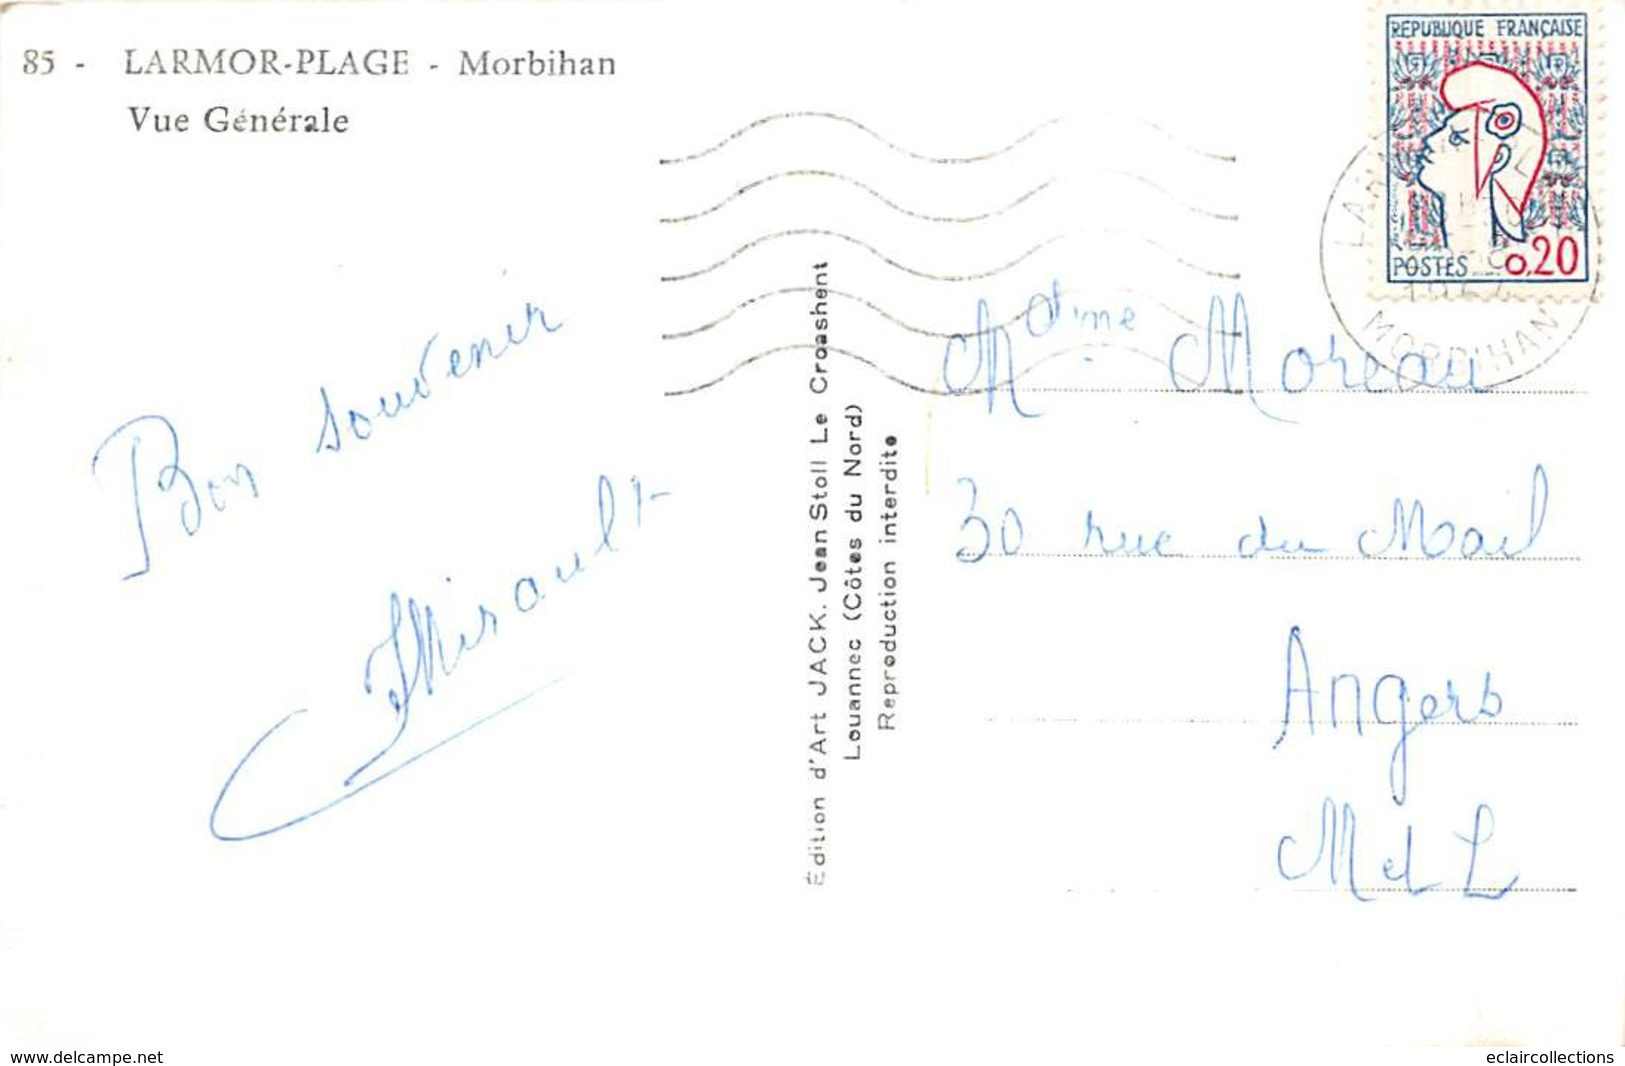 85 - LARMOR-PLAGE - Morbihan
Vue Générale
Bon souvenir
Mirault
Édition d'Art JACK. Jean Stoll Le Croashent
Louannec (Côtes du Nord)
Reproduction interdite
REPUBLIQUE FRANÇAISE
POSTES 0,20
MORBIHAN
Mme Moreau
30 rue du Mail
Angers
M et L
www.delcampe.net
eclaircollections